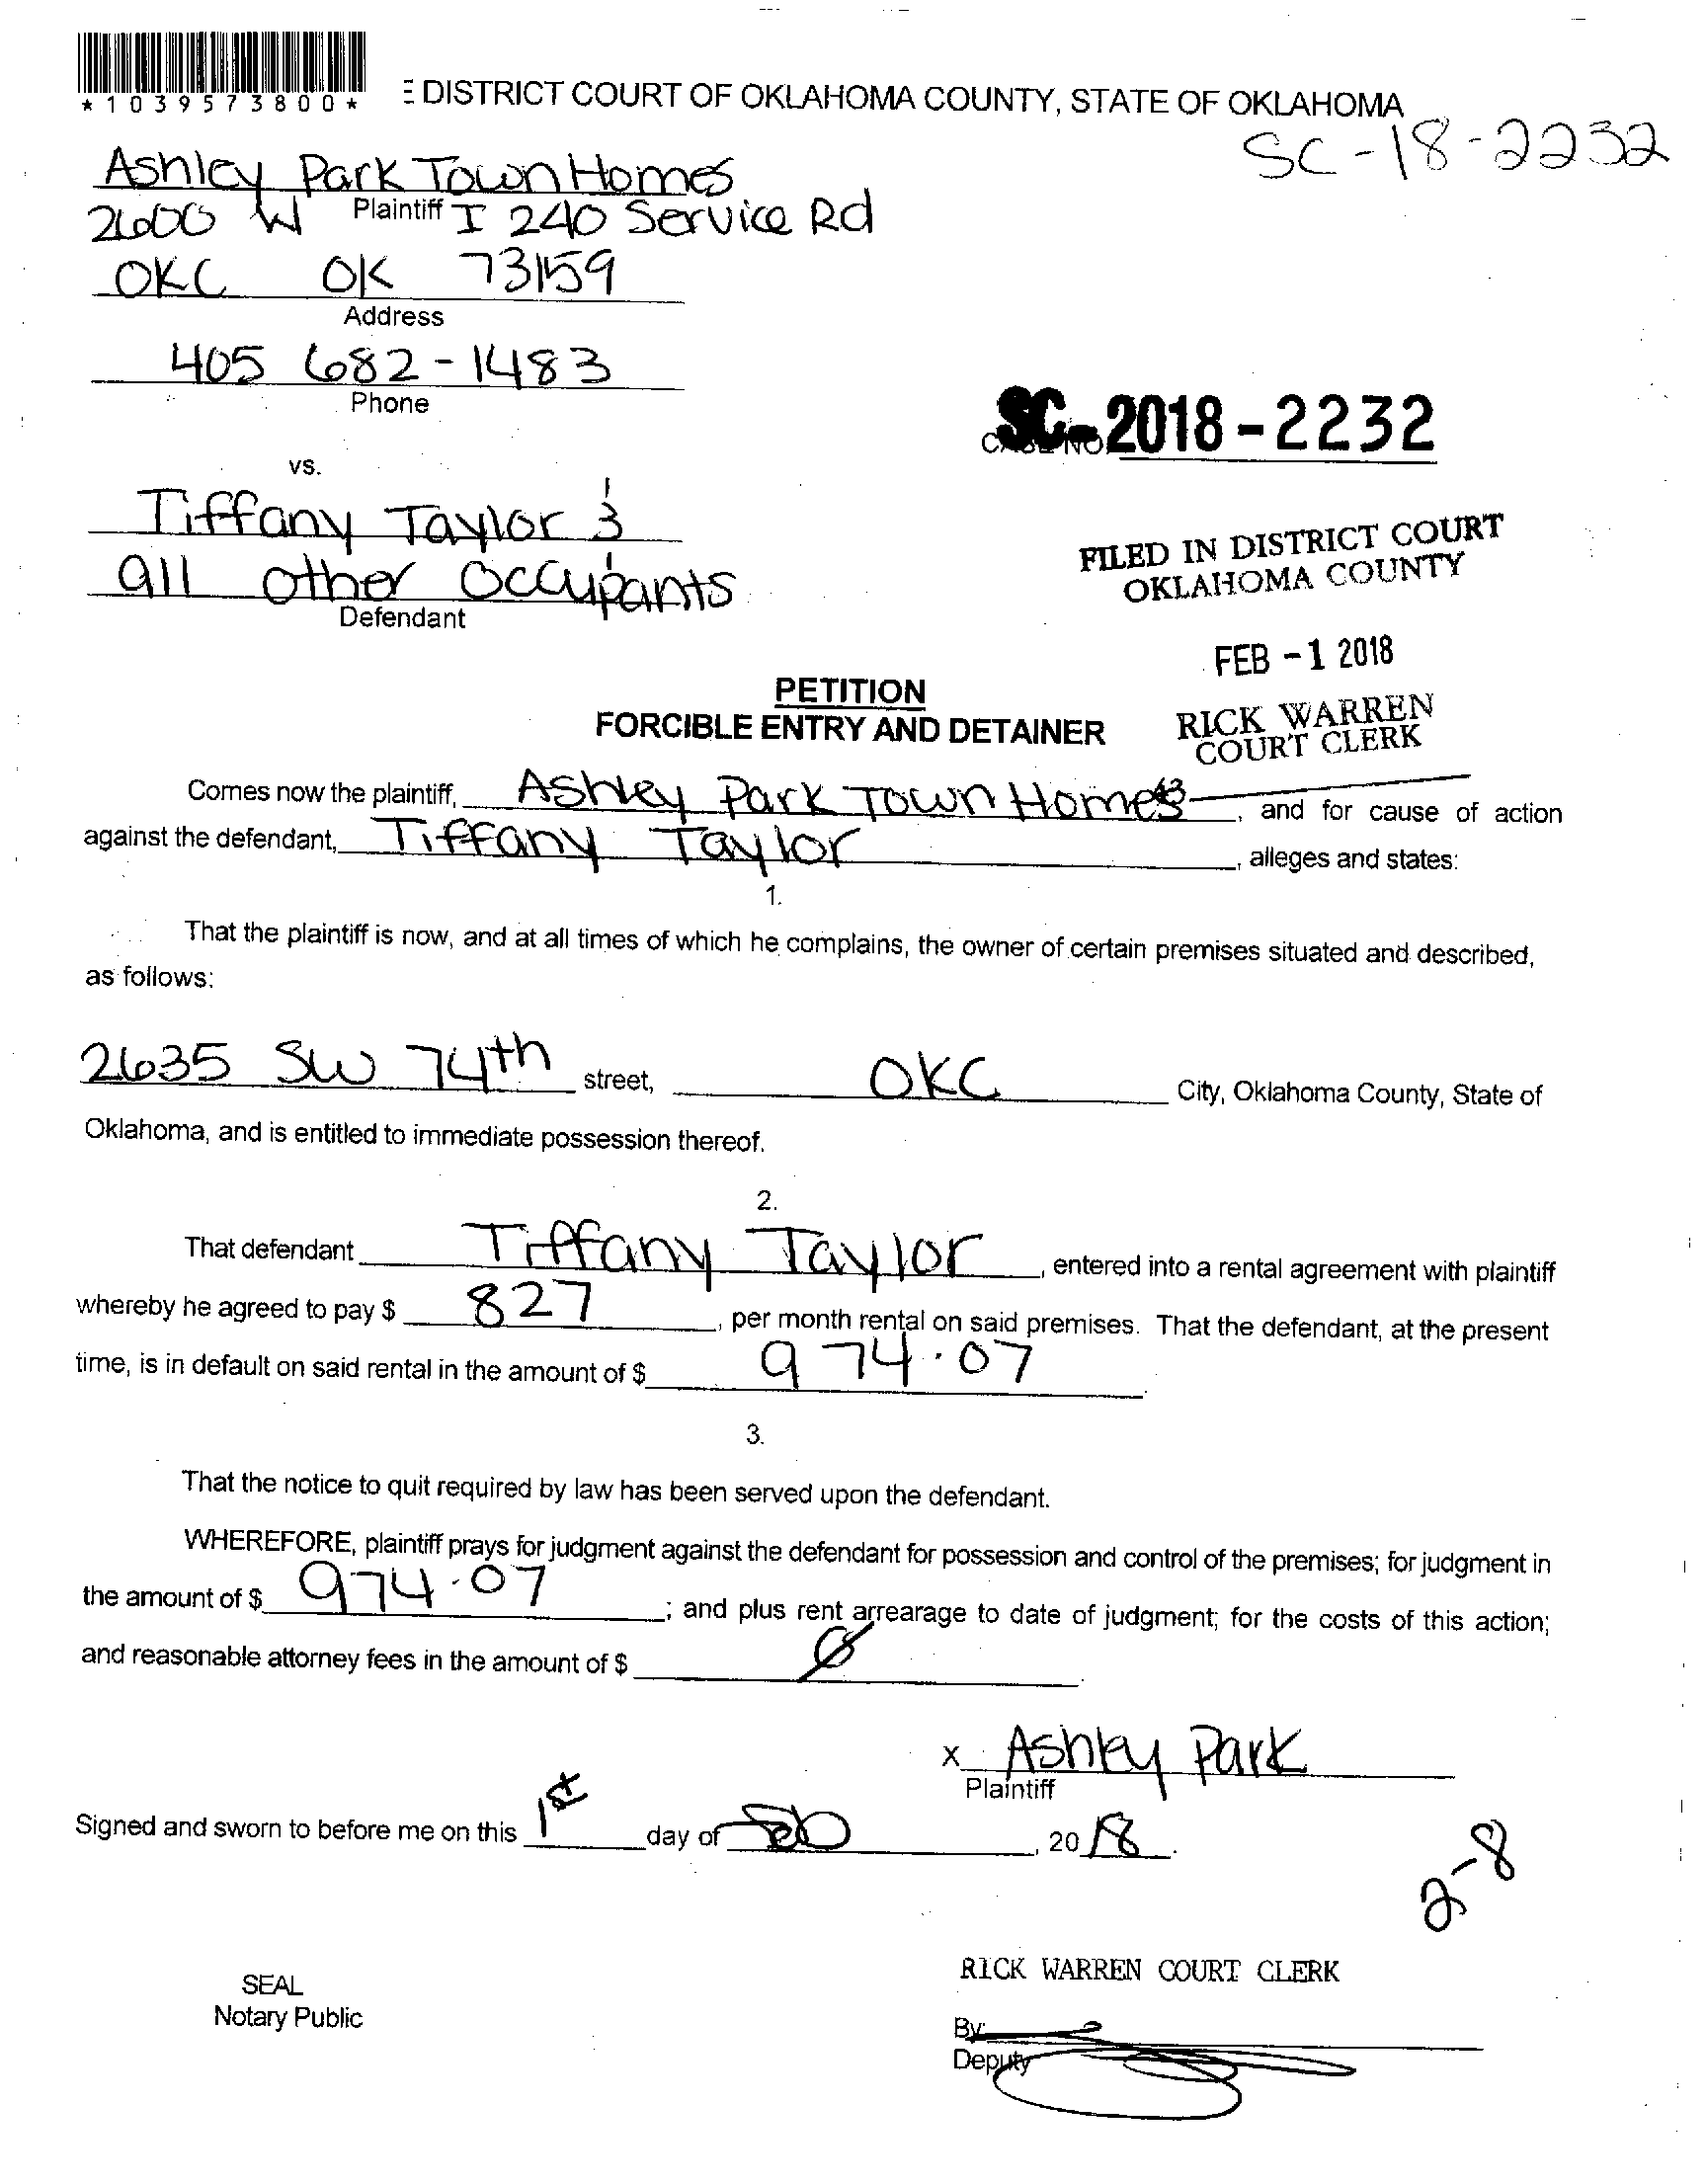 *1039573800*
E DISTRICT COURT OF OKLAHOMA COUNTY, STATE OF OKLAHOMA
SC-18-2232
Ashley Park Town Homes
Plaintiff
2600 W I 240 Service Rd
OKC OK 73159
Address
405 682-1483
Phone
SC-2018-2232
CASE NO.
vs.
Tiffany Taylor &
all other occupants
Defendant
FILED IN DISTRICT COURT
OKLAHOMA COUNTY
FEB -1 2018
RICK WARREN
COURT CLERK
PETITION
FORCIBLE ENTRY AND DETAINER
Comes now the plaintiff, Ashley Park Town Homes, and for cause of action
against the defendant, Tiffany Taylor, alleges and states:
1.
That the plaintiff is now, and at all times of which he complains, the owner of certain premises situated and described,
as follows:
2635 SW 74th street, OKC City, Oklahoma County, State of
Oklahoma, and is entitled to immediate possession thereof.
2.
That defendant Tiffany Taylor, entered into a rental agreement with plaintiff
whereby he agreed to pay $ 827, per month rental on said premises. That the defendant, at the present
time, is in default on said rental in the amount of $ 974.07.
3.
That the notice to quit required by law has been served upon the defendant.
WHEREFORE, plaintiff prays for judgment against the defendant for possession and control of the premises; for judgment in
the amount of $ 974.07; and plus rent arrearage to date of judgment; for the costs of this action;
and reasonable attorney fees in the amount of $ 0
x Ashley Park
Plaintiff
Signed and sworn to before me on this 1st day of Feb, 2018.
2-8
RICK WARREN COURT CLERK
SEAL
Notary Public
By:
Deputy